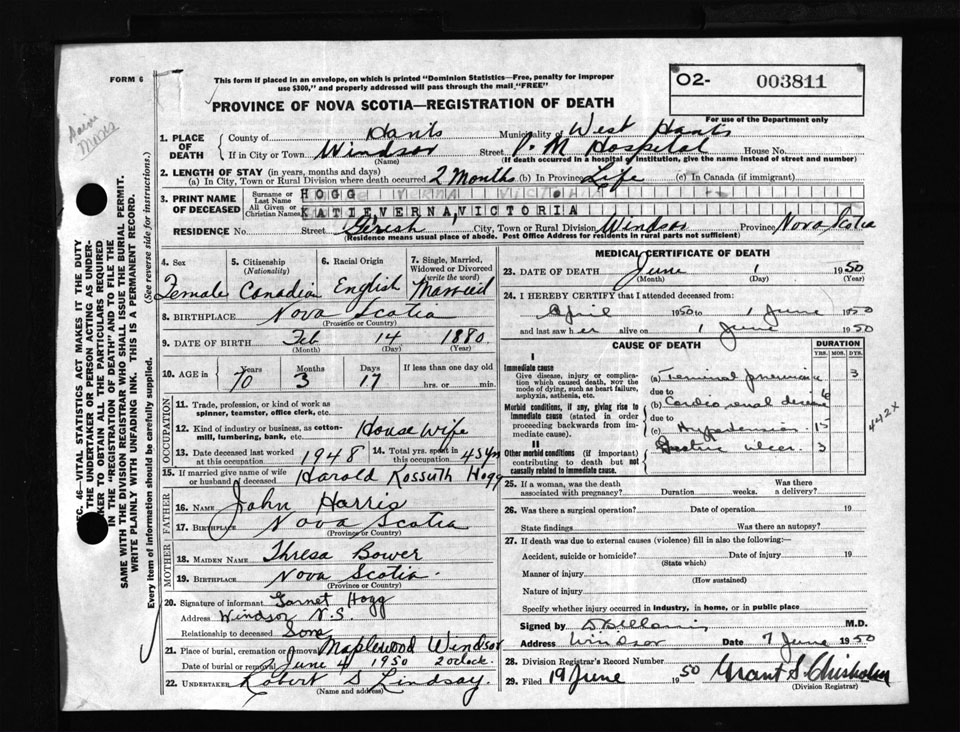 FORM 6
This form if placed in an envelope, on which is printed "Dominion Statistics—Free, penalty for improper
use $300," and properly addressed will pass through the mail "FREE"
PROVINCE OF NOVA SCOTIA—REGISTRATION OF DEATH
O2- 003811
For use of the Department only
1. PLACE OF DEATH
County of Hants Municipality of West Hants
If in City or Town Windsor Street P. M Hospital House No.
(Name) (If death occurred in a hospital or institution, give the name instead of street and number)
2. LENGTH OF STAY (in years, months and days)
(a) In City, Town or Rural Division where death occurred 2 Months (b) In Province Life (c) In Canada (if immigrant)
3. PRINT NAME OF DECEASED
Surname or Last Name HOGG
All Given or Christian Names KATIE,VERNA,VICTORIA
RESIDENCE No. Street Gerish City, Town or Rural Division Windsor Province Nova Scotia
(Residence means usual place of abode. Post Office Address for residents in rural parts not sufficient)
4. Sex Female
5. Citizenship (Nationality) Canadian
6. Racial Origin English
7. Single, Married, Widowed or Divorced (write the word) Married
8. BIRTHPLACE Nova Scotia
(Province or Country)
9. DATE OF BIRTH Feb 14 1880
(Month) (Day) (Year)
10. AGE in Years 70 Months 3 Days 17 If less than one day old
hrs. or min.
OCCUPATION
11. Trade, profession, or kind of work as
spinner, teamster, office clerk, etc.
12. Kind of industry or business, as cotton-
mill, lumbering, bank, etc. House Wife
13. Date deceased last worked
at this occupation 1948
14. Total yrs. spent
in this occupation 45 yrs
15. If married give name of wife
or husband of deceased Harold Kossuth Hogg
FATHER
16. Name John Harris
17. Birthplace Nova Scotia
(Province or Country)
MOTHER
18. MAIDEN NAME Thresa Bower
19. BIRTHPLACE Nova Scotia.
(Province or Country)
20. Signature of informant Garnet Hogg
Address Windsor N.S.
Relationship to deceased Son
21. Place of burial, cremation or removal Maplewood Windsor
Date of burial or removal June 4 1950 2 oclock.
22. UNDERTAKER Robert S Lindsay.
(Name and address)
MEDICAL CERTIFICATE OF DEATH
23. DATE OF DEATH June 1 1950
(Month) (Day)
24. I HEREBY CERTIFY that I attended deceased from:
April 1950 to 1 June 1950
and last saw her alive on 1 June 1950
CAUSE OF DEATH
DURATION
YRS. MOS. DYS.
I
Immediate cause
Give disease, injury or complica-
tion which caused death, NOT the
mode of dying, such as heart failure,
asphyxia, asthenia, etc.
(a) Terminal pneumonia 3
due to
Morbid conditions, if any, giving rise to
immediate cause (stated in order
proceeding backwards from im-
mediate cause).
(b) Cardio renal disease
due to
(c) Hypertension 15
II
Other morbid conditions (if important)
contributing to death but not
causally related to immediate cause.
Gastric ulcer. 3
442X
25. If a woman, was the death
associated with pregnancy? Duration weeks. Was there
a delivery?
26. Was there a surgical operation? Date of operation 19
State findings Was there an autopsy?
27. If death was due to external causes (violence) fill in also the following:—
Accident, suicide or homicide? Date of injury 19
(State which)
Manner of injury
(How sustained)
Nature of injury
Specify whether injury occurred in industry, in home, or in public place
Signed by M.D.
Address Windsor Date 7 June 1950
28. Division Registrar's Record Number
29. Filed 19 June 1950 Grant S. Chisholm
(Division Registrar)
SEC. 46—VITAL STATISTICS ACT MAKES IT THE DUTY
OF THE UNDERTAKER OR PERSON ACTING AS UNDER-
TAKER TO OBTAIN ALL THE PARTICULARS REQUIRED
IN THE "REGISTRATION OF DEATH" AND TO FILE THE
SAME WITH THE DIVISION REGISTRAR WHO SHALL ISSUE THE BURIAL PERMIT.
WRITE PLAINLY WITH UNFADING INK. THIS IS A PERMANENT RECORD.
Every item of information should be carefully supplied. (See reverse side for instructions.)